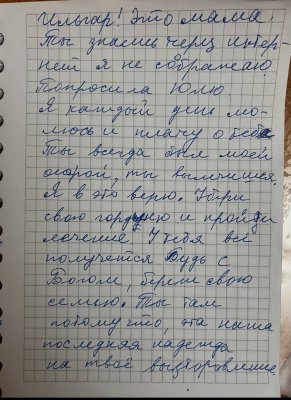 Ильгар! Это мама.
Ты знаешь через интер-
нет я не соображаю
Попросила Юлю
Я каждый день мо-
люсь и плачу о тебе
Ты всегда был моей
опорой, ты вылечишся.
Я в это верю. Убери
свою гордыню и пройди
лечение. У тебя всё
получется Будь с
Богом, береги свою
семью. Ты там
потому что, эта наша
последняя надежда
на твоё выздоровление.